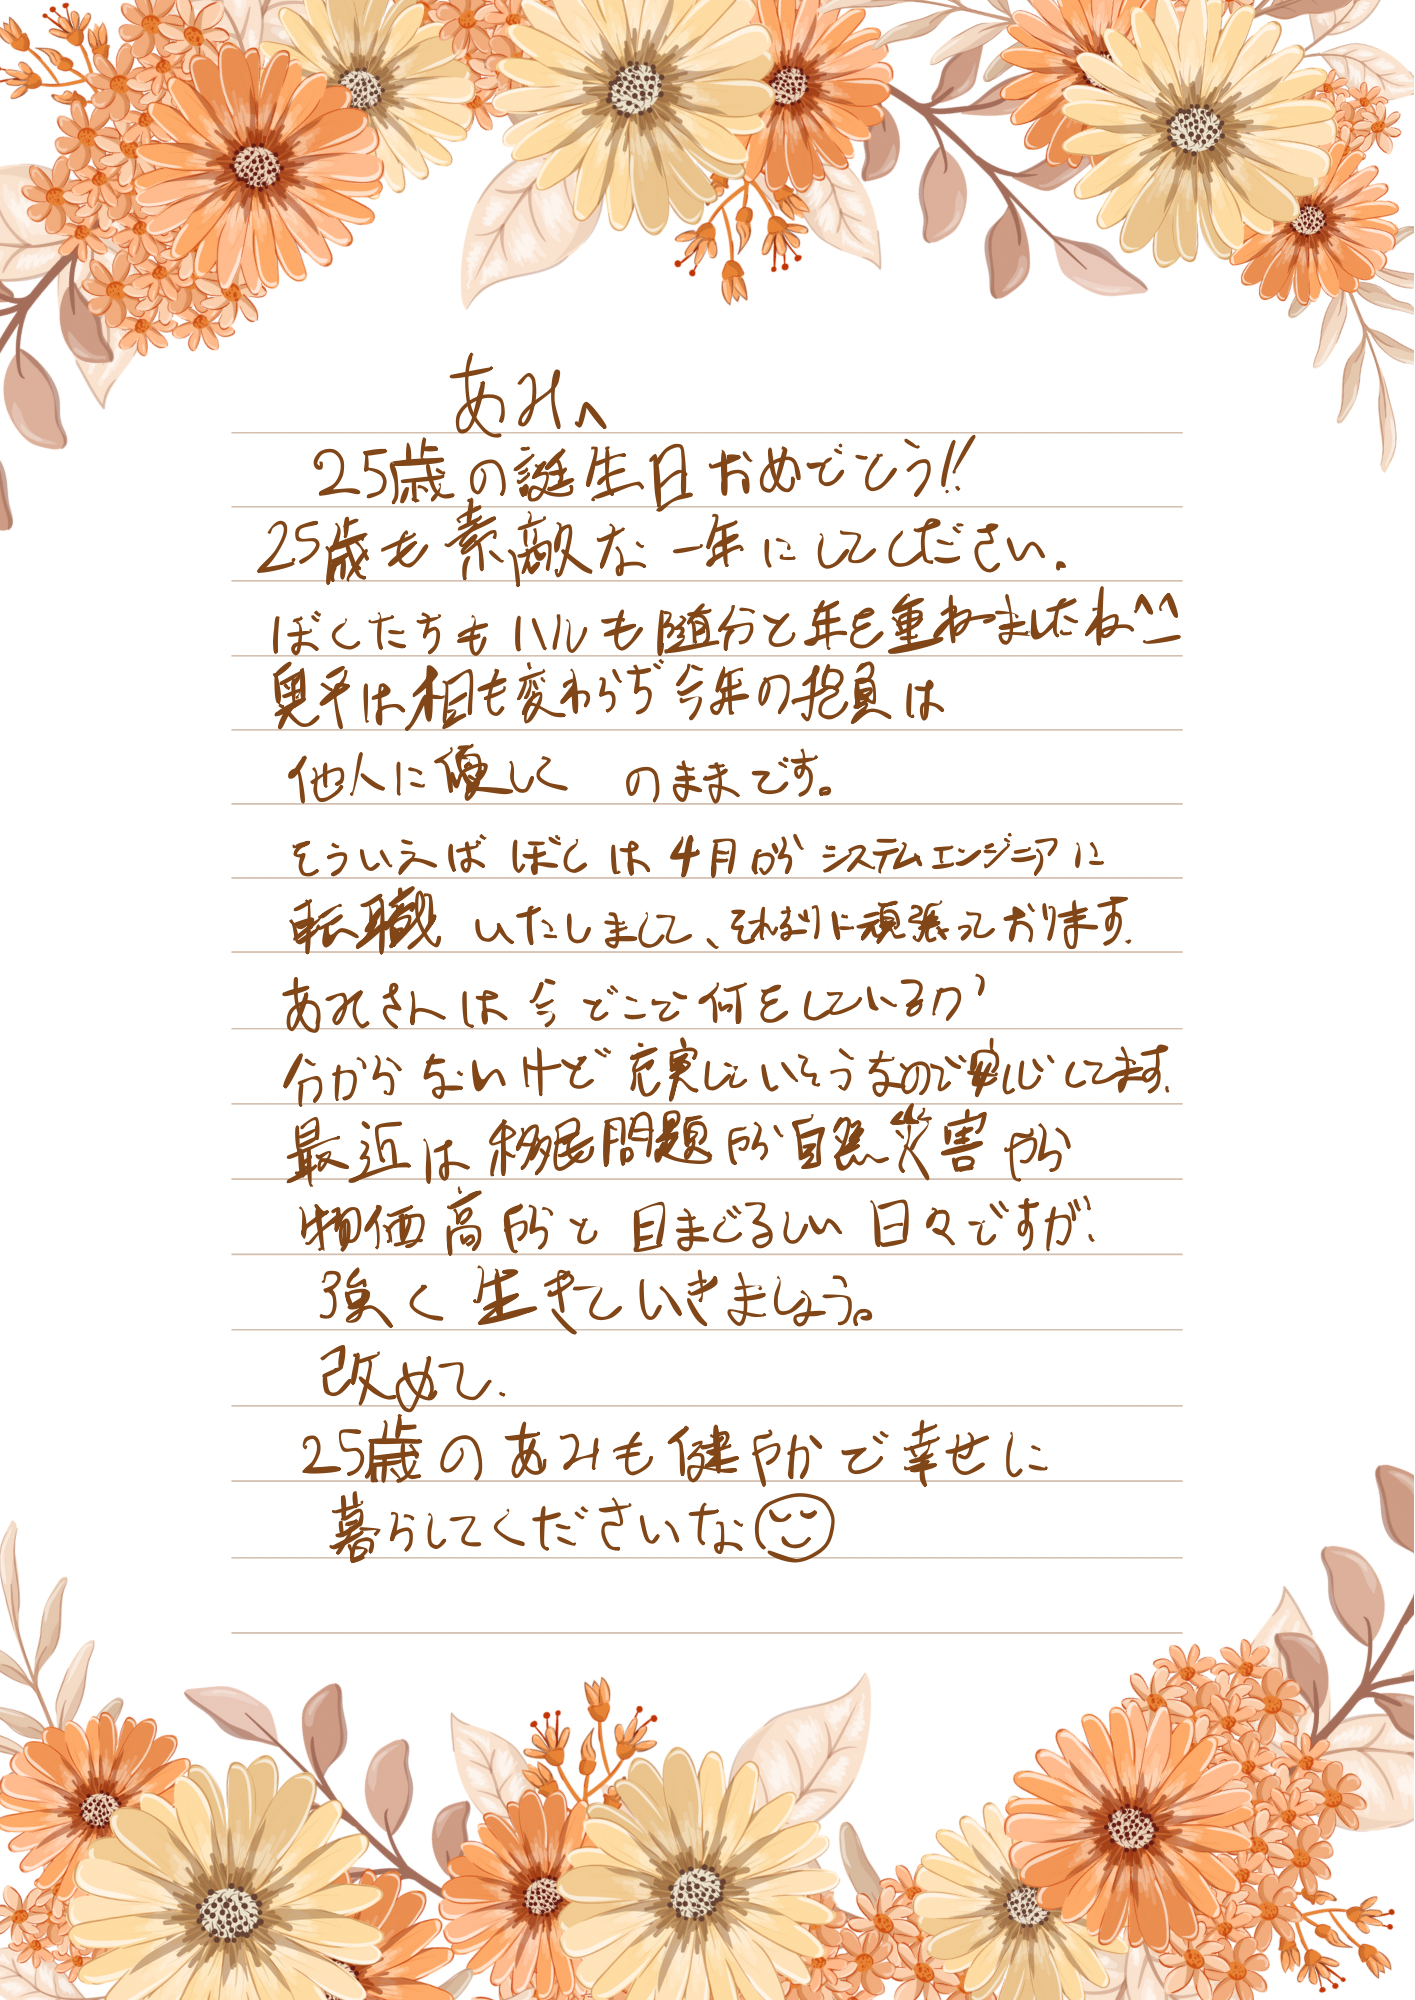 あみへ
25歳の誕生日おめでとう!!
25歳も素敵な一年にしてください.
ぼくたちもハルも随分と年を重ねましたね^^
奥平は相も変わらず今年の抱負は
他人に優しく のままです。
そういえば ぼくは 4月から システムエンジニアに
転職 いたしまして、それなりに頑張っております.
あみさんは 今 どこで 何をしているか
分からないけど 充実していそうなので安心してます.
最近は 移民問題から自然災害やら
物価高やらと 目まぐるしい 日々ですが、
強く 生きていきましょう。
改めて.
25歳のあみも健やかで幸せに
暮らしてくださいな